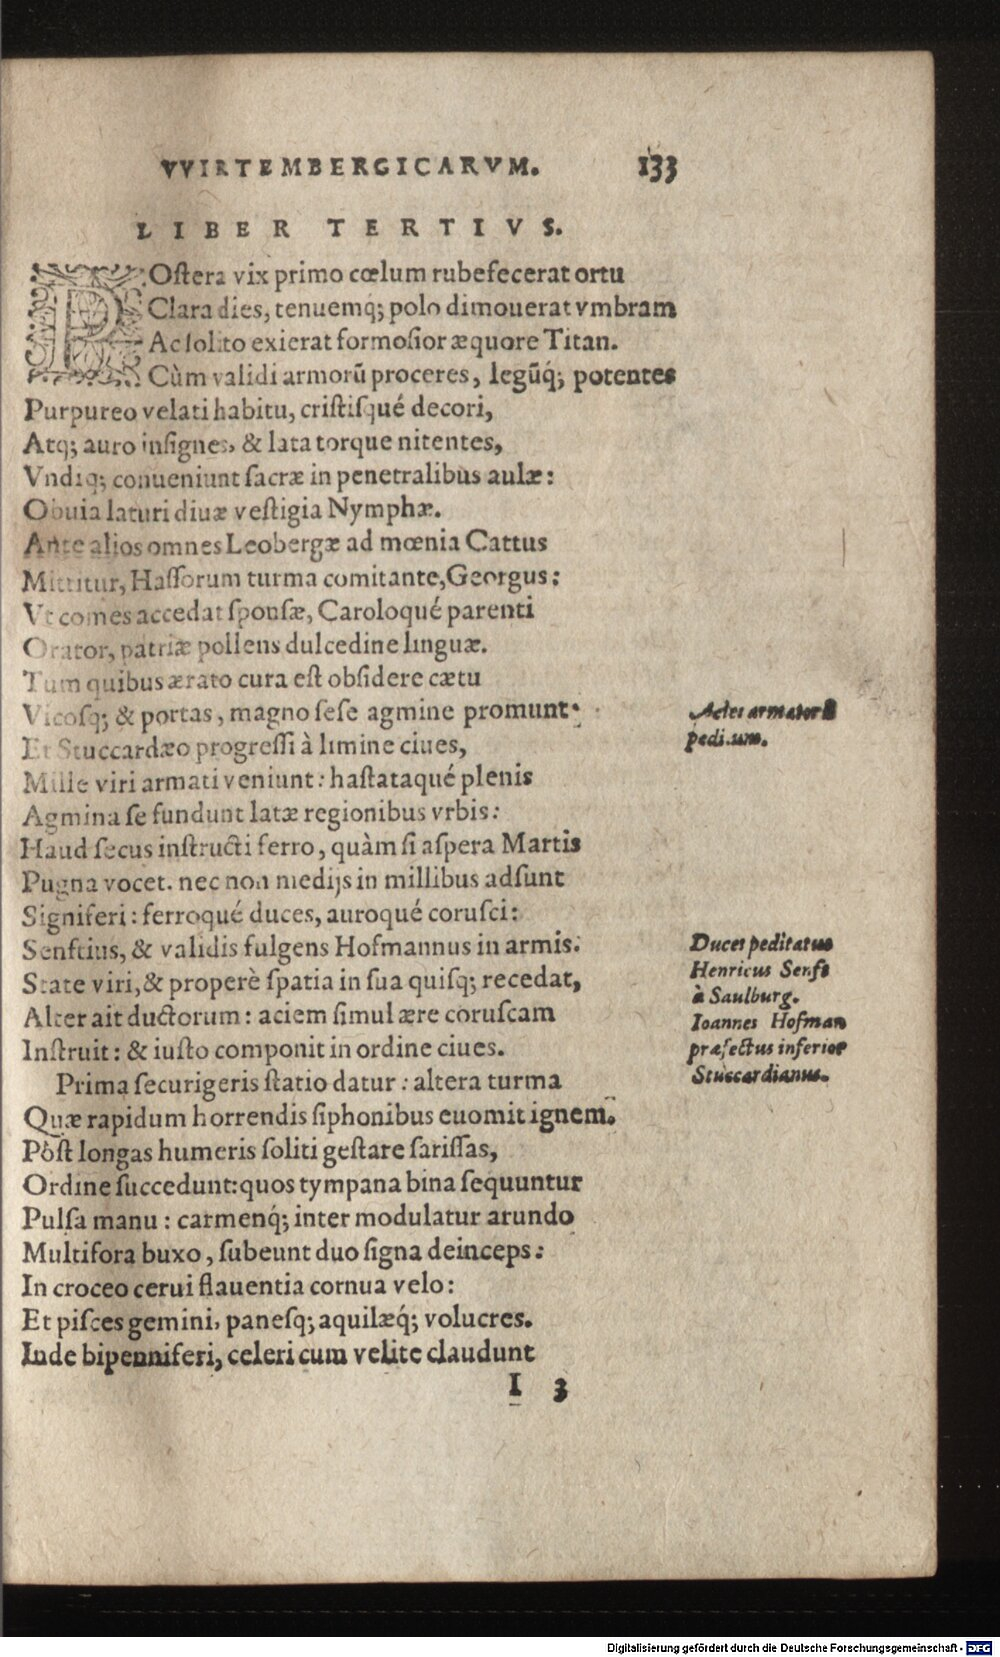 VVIRTEMBERGICARVM. 133
LIBER TERTIVS.
POſtera vix primo cœlum rubefecerat ortu
Clara dies, tenuemq́; polo dimouerat vmbram
Ac ſolito exierat formoſior æquore Titan.
Cùm validi armorũ proceres, legũq́; potentes
Purpureo velati habitu, criſtiſqué decori,
Atq; auro inſignes, & lata torque nitentes,
Vndiq; conueniunt ſacræ in penetralibus aulæ:
Obuia laturi diuæ veſtigia Nymphæ.
Ante alios omnes Leobergæ ad mœnia Cattus
Mittitur, Haſſorum turma comitante, Georgus:
Vt comes accedat ſponſæ, Caroloqué parenti
Orator, patriæ pollens dulcedine linguæ.
Tum quibus ærato cura eſt obſidere cætu
Vicoſq; & portas, magno ſeſe agmine promunt:
Et Stuccardæo progreſſi à limine ciues,
Mille viri armati veniunt: haſtataqué plenis
Agmina ſe fundunt latæ regionibus vrbis:
Haud ſecus inſtructi ferro, quàm ſi aſpera Martis
Pugna vocet. nec non medijs in millibus adſunt
Signiferi: ferroqué duces, auroqué coruſci:
Senftius, & validis fulgens Hofmannus in armis.
State viri, & properè ſpatia in ſua quiſq; recedat,
Alter ait ductorum: aciem ſimul ære coruſcam
Inſtruit: & iuſto componit in ordine ciues.
Prima ſecurigeris ſtatio datur: altera turma
Quæ rapidum horrendis ſiphonibus euomit ignem.
Pòſt longas humeris ſoliti geſtare ſariſſas,
Ordine ſuccedunt: quos tympana bina ſequuntur
Pulſa manu: carmenq́; inter modulatur arundo
Multifora buxo, ſubeunt duo ſigna deinceps:
In croceo cerui flauentia cornua velo:
Et piſces gemini, paneſq; aquilæq́; volucres.
Inde bipenniferi, celeri cum velite claudunt
I 3
Acies armatorũ
peditum.
Duces peditatus
Henricus Senft
à Saulburg.
Ioannes Hofman
præfectus inferior
Stuccardianus.
Digitalisierung gefördert durch die Deutsche Forschungsgemeinschaft - DFG